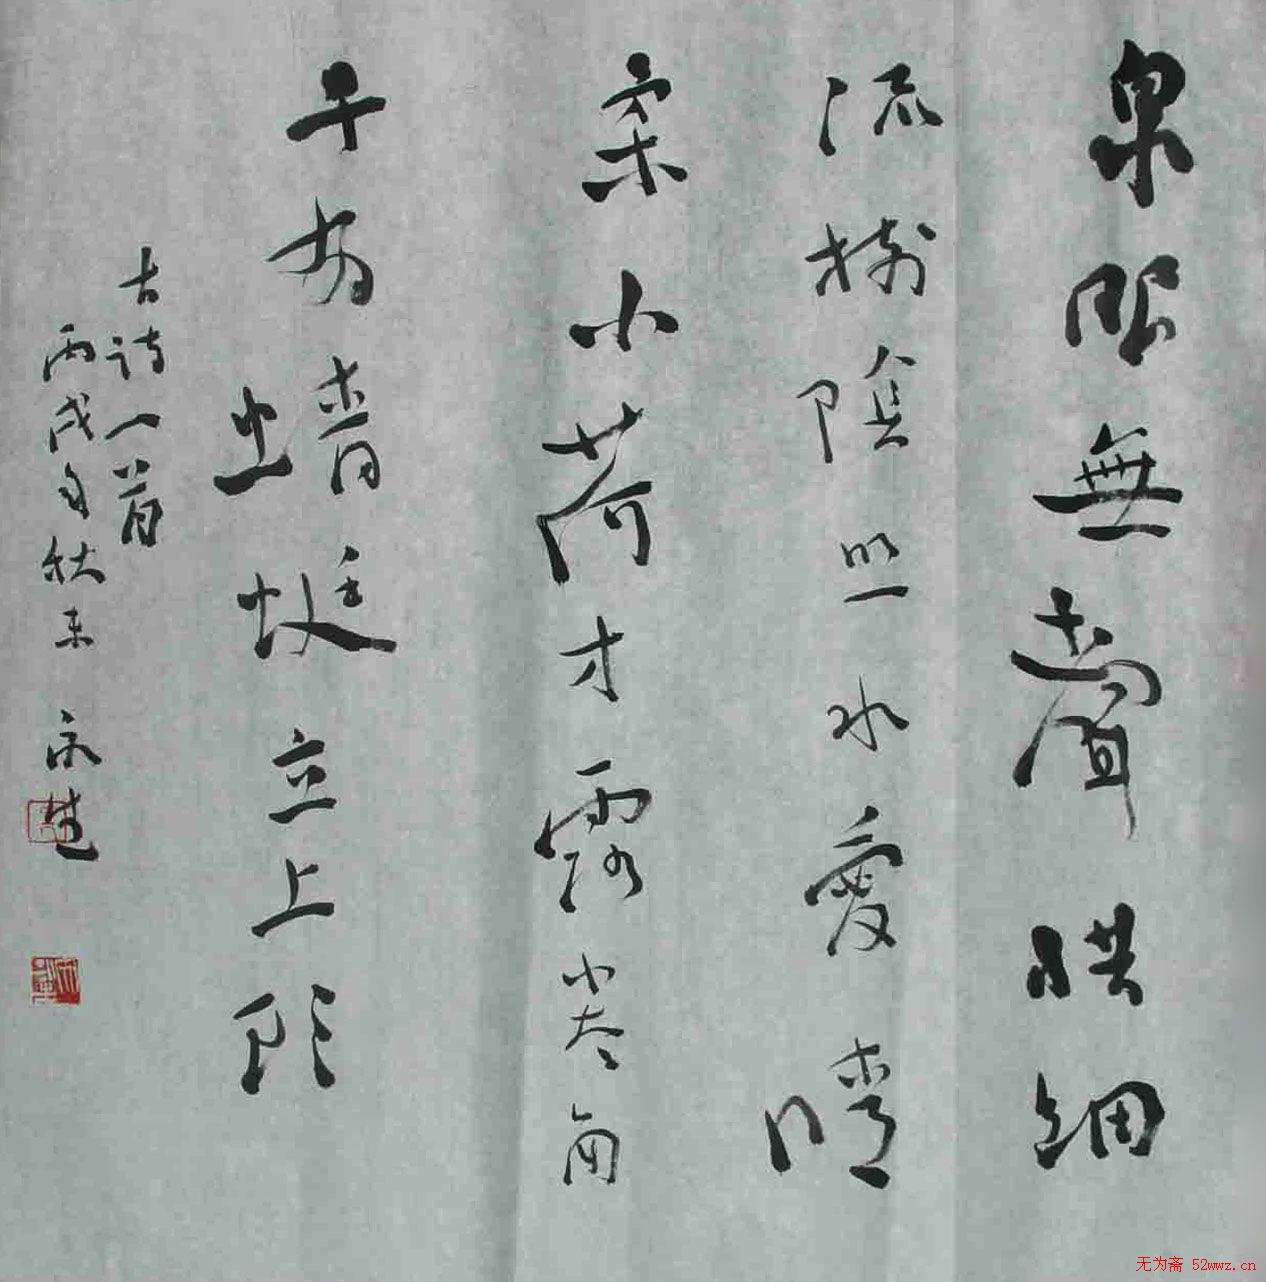 泉眼無聲惜細
流樹陰照水愛晴
柔小荷才露尖尖角
早有蜻蜓立上頭
古詩一首
丙戌秋末
无为斋 52wwz.cn